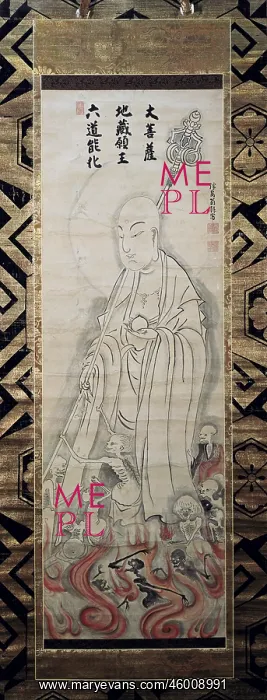 六道能化
地藏願王
大菩薩
ME
PL
ME
PL
www.maryevans.com/46008991